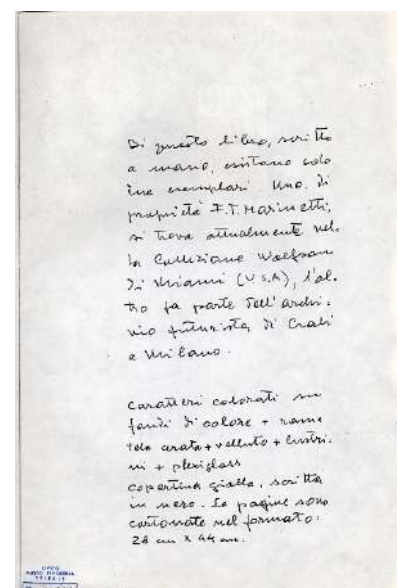 Di questo libro, scritto
a mano, esistono solo
due esemplari. Uno, di
proprietà F.T. Marinetti,
si trova attualmente nel-
la Collezione Wolfson
di Miami (USA), l'al-
tro fa parte dell'archi-
vio futurista di Crali
a Milano.
Caratteri colorati su
fondi di colore + rame
tela cerata + velluto + lustri-
ni + plexiglass
copertina gialla, scritta
in nero. Le pagine sono
cartonate nel formato:
28 cm x 44 cm.